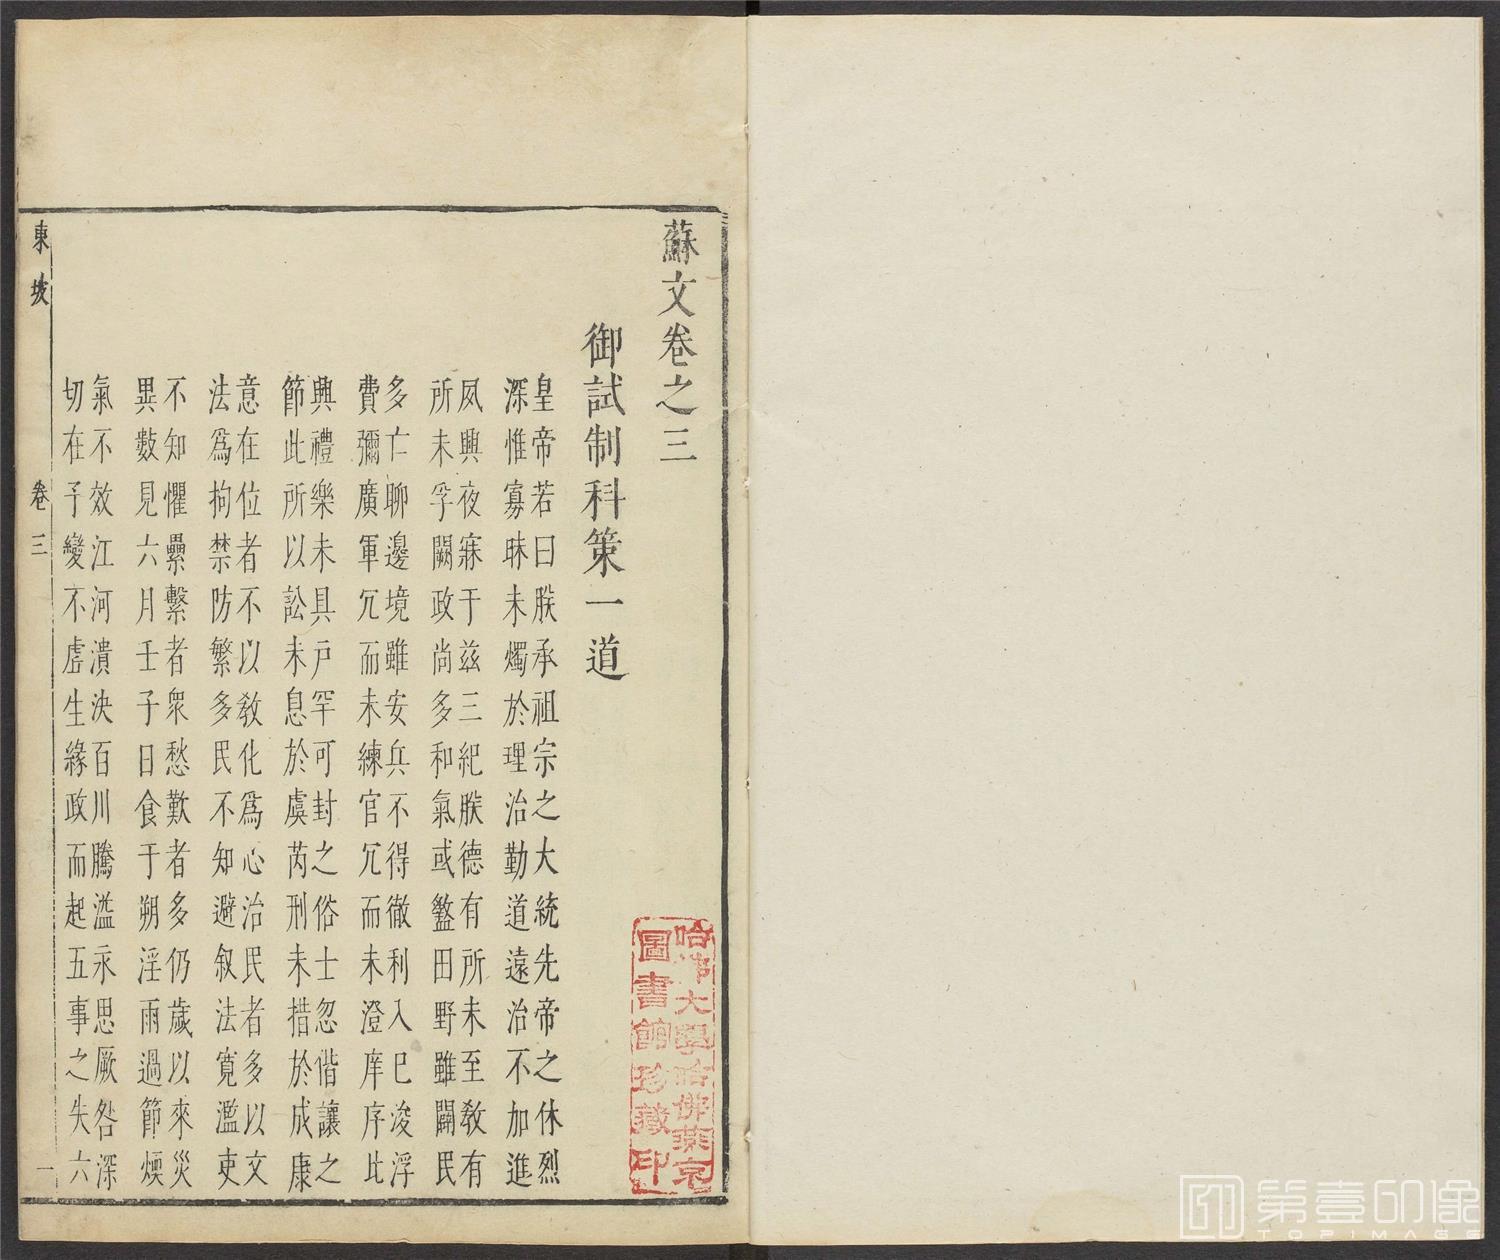 蘇文卷之三
御試制科策一道
皇帝若曰朕承祖宗之大統先帝之休烈
深惟寡昧未燭於理治勤道遠治不加進
夙興夜寐于茲三紀朕德有所未至教有
所未孚闕政尚多和氣或盭田野雖闢民
多亡聊邊境雖安兵不得徹利入已浚浮
費彌廣軍冗而未練官冗而未澄庠序比
興禮樂未具戶罕可封之俗士忽偕讓之
節此所以訟未息於虞芮刑未措於成康
意在位者不以教化為心治民者多以文
法爲拘禁防繁多民不知避叙法寬濫吏
不知懼纍繫者衆愁歎者多仍歲以來災
異數見六月壬子日食于朔淫雨過節煥
氣不效江河潰決百川騰溢永思厥咎深
切在予變不虛生緣政而起五事之失六
東坡
卷三
一
哈佛大學哈佛燕京
圖書館珍藏印
第壹印像
TOPIMAGE